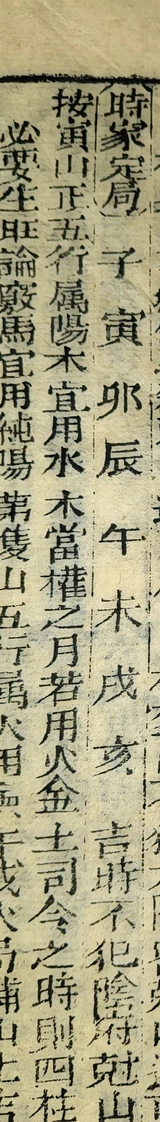 時家定局 子寅卯辰午未戌亥 吉時不犯陰府尅山
按寅山正五行属陽木宜用水木當權之月若用火金土司令之時則四柱
必要生旺論祿馬宜用純陽第隻山五行属火用寅午戌火局補山大吉